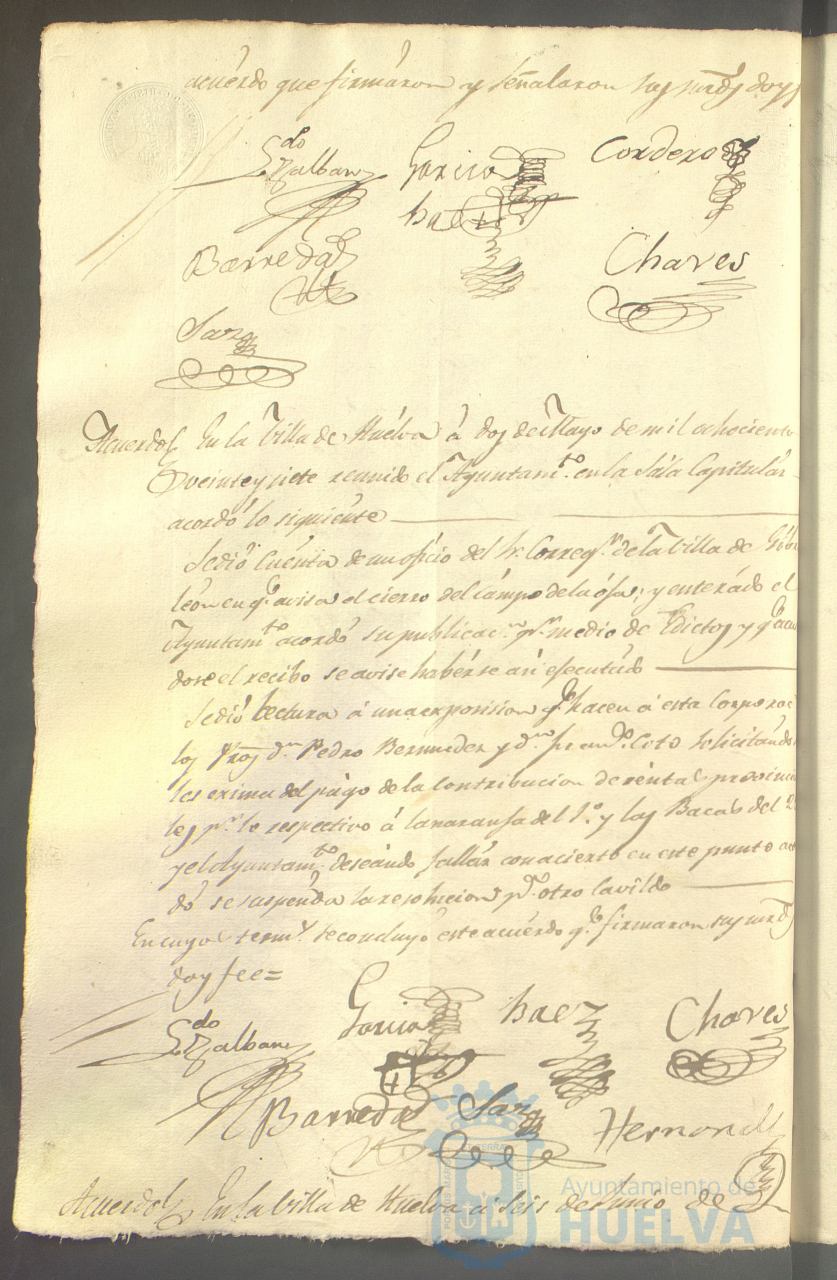 acuerdo que firmáron y señalaron sus mrds doy f
Ldo
Zalban García Cordero
Baez
Barreda Chaves
Saz
Acuerdo En la Villa de Huélva á dos de Mayo de mil ochociento
veinte y siete reunido el Ayuntamto. en la Sála Capitulár
acordó lo siguiénte
Se dió Cuénta de un oficio del Sr. Corregr. de la Villa de Gibr
león en qe. avisa el cierro del cámpo de la ósa; y enterádo el
Ayuntamto acordó su publicacn. pr. medio de Edictos y qe. acu
dose el recibo se avise habérse así ejecutádo
Se dió lectura á una exposision qe. hacen á esta Corporac
los Vros. dn. Pedro Bermudez y dn. Coto solicitándo
les exima del págo de la Contribucion de réntas provincia
les pr. lo respectivo á la naranja del 1o. y las Bacas del 2
y el Ayuntamto. deseándo fallár con acierto en este punto acor
dó se suspénda la resolucion pa. otro Cavildo
En cuyos terms. se concluyó este acuérdo qe. firmaron sus mrds
doy fee=
Ldo
Zalban García Baez Chaves
Barreda Saz Hernand
Acuerdo En la Villa de Huelva á seis de Junio de
Ayuntamiento de
HUELVA